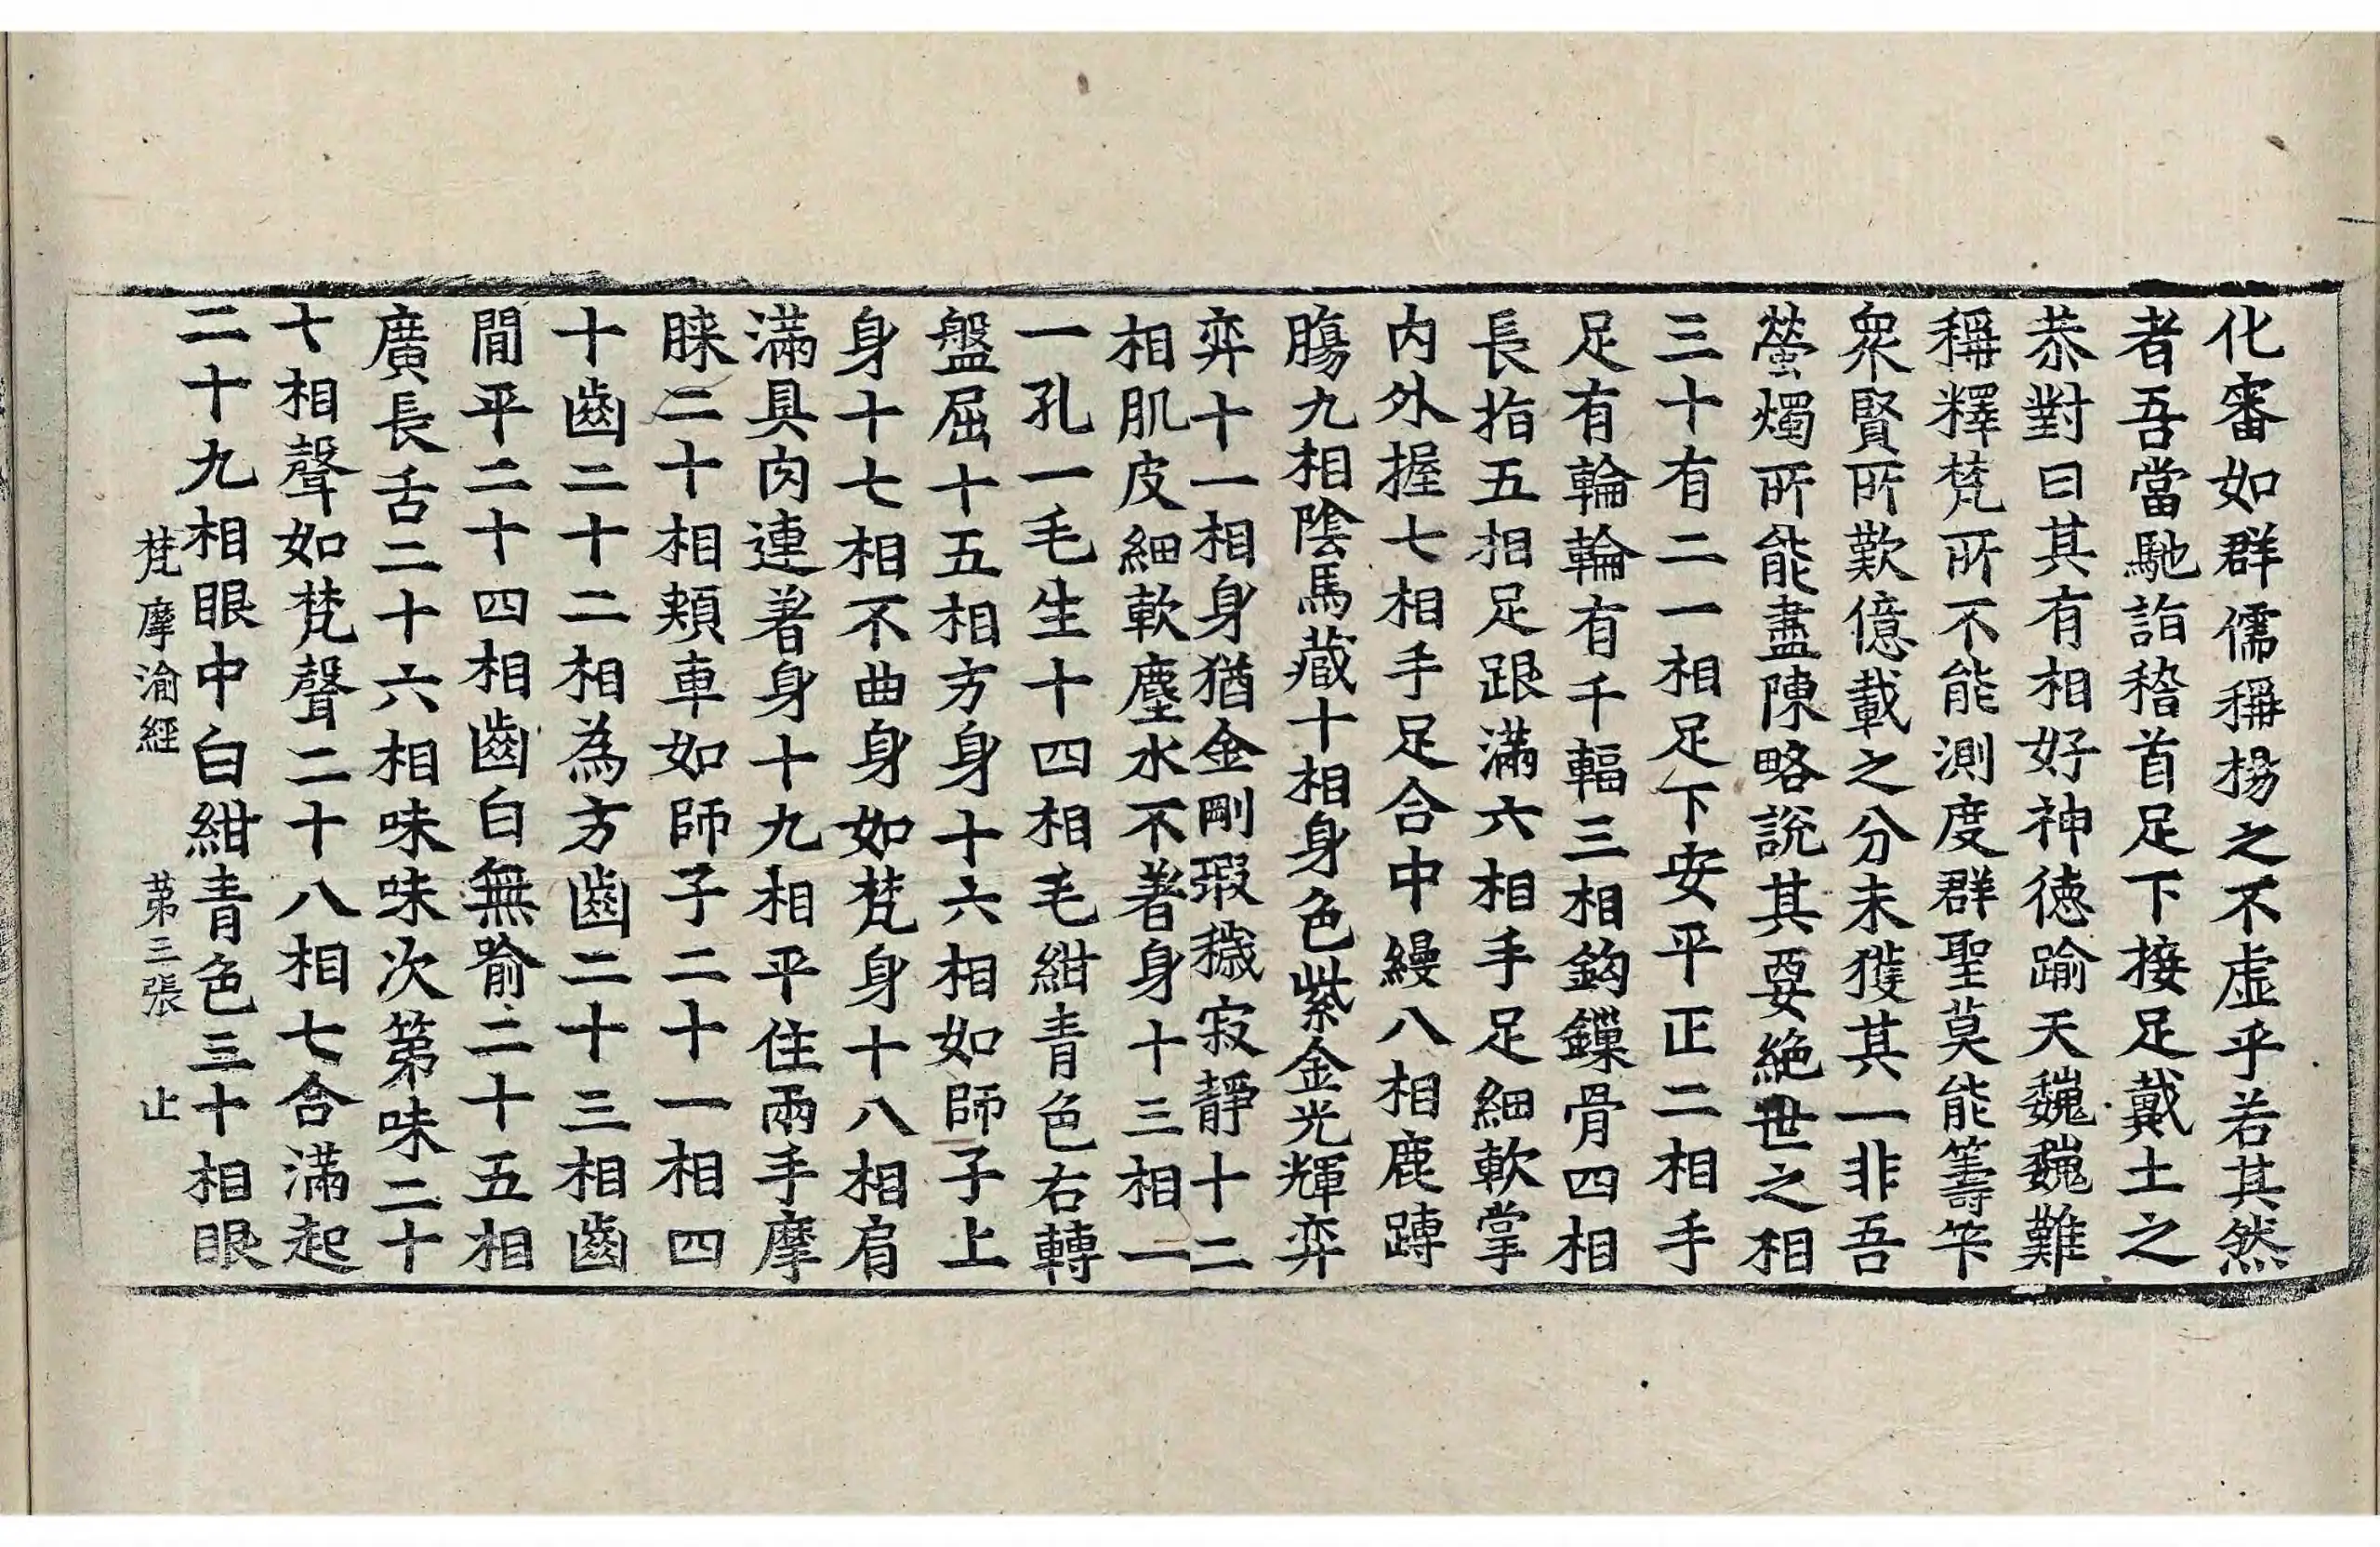 化審如群儒稱揚之不虛乎若其然
者吾當馳詣稽首足下接足戴土之
恭對曰其有相好神德踰天巍巍難
稱釋梵所不能測度群聖莫能籌筭
衆賢所歎億載之分未獲其一非吾
螢燭所能盡陳略說其要絕世之相
三十有二一相足下安平正二相手
足有輪輪有千輻三相鈎鏁骨四相
長指五相足跟滿六相手足細軟掌
内外握七相手足合中縵八相鹿䏝
膓九相陰馬藏十相身色紫金光輝弈
弈十一相身猶金剛瑕穢寂靜十二
相肌皮細軟塵水不著身十三相一
一孔一毛生十四相毛紺青色右轉
盤屈十五相方身十六相如師子上
身十七相不曲身如梵身十八相肩
滿具肉連著身十九相平住兩手摩
膝二十相頰車如師子二十一相四
十齒二十二相為方齒二十三相齒
間平二十四相齒白無喻二十五相
廣長舌二十六相味味次第味二十
七相聲如梵聲二十八相七合滿起
二十九相眼中白紺青色三十相眼
梵摩渝經 第三張 止